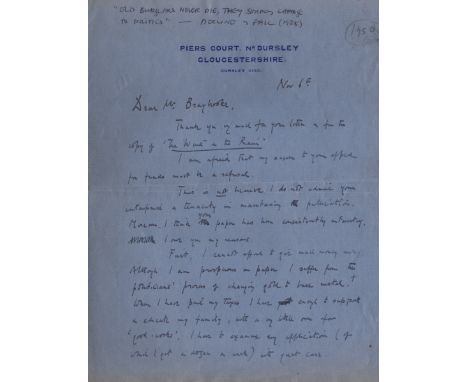 "OLD BURGLARS NEVER DIE, THEY SIMPLY CHANGE
TO POLITICS" — DECLINE & FALL (1928)
1950
PIERS COURT, Nr DURSLEY
GLOUCESTERSHIRE.
Nov 6th
Dear Mr Braybrooke,
Thank you very much for your letter & for the
copy of 'The Wind & the Rain'
I am afraid that my answer to your appeal
for funds must be a refusal.
This is not because I do not admire your
enterprise & tenacity in maintaining publication.
Moreover I think your paper has been consistently interesting.
I owe you my reasons.
First, I cannot afford to give much money away.
Although I am prosperous on paper I suffer from the
politicians' process of changing gold to base metal.
When I have paid my taxes I have enough to support
& educate my family, with a very little over for
'good-works'. I have to examine any application (of
which I get a dozen a week) with great care.